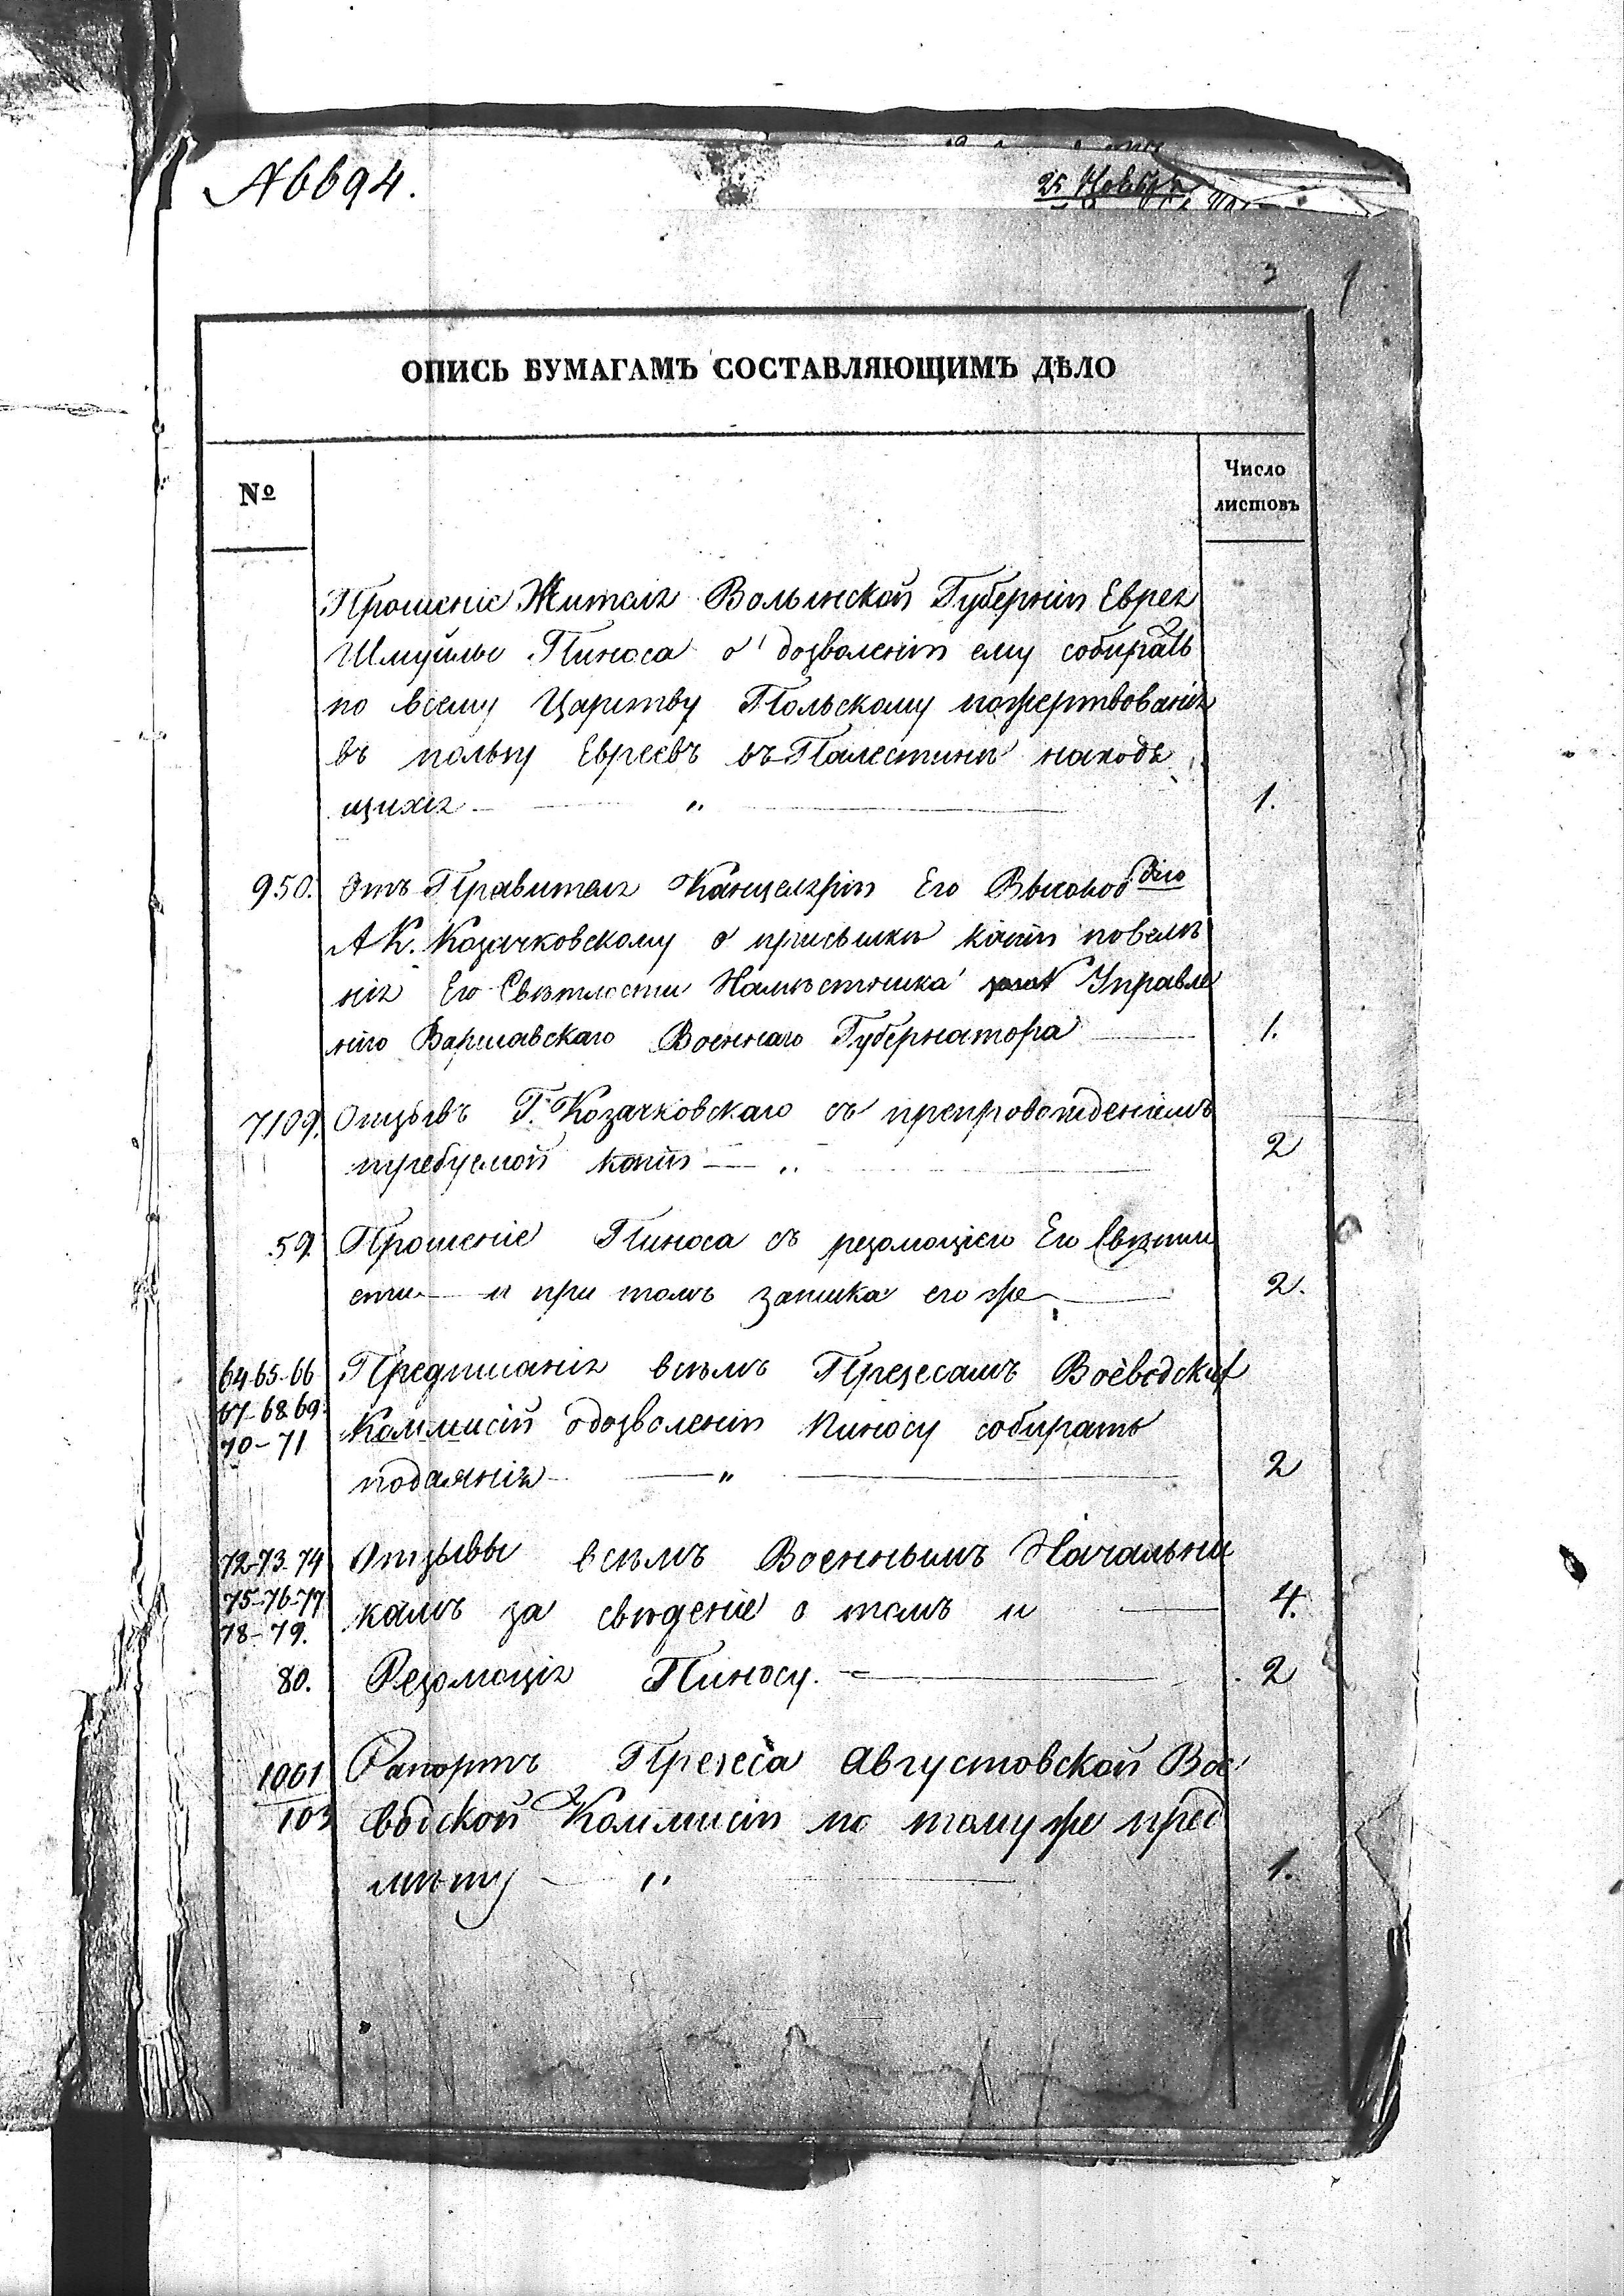 № 6694.
25 Ноября
3
1
ОПИСЬ БУМАГАМЪ СОСТАВЛЯЮЩИМЪ ДѢЛО
№
Число
листовъ
Прошеніе Жителя Волынской Губерніи Еврея
Шмуйлы Пинкоса о дозволеніи ему собирать
по всему Царству Польскому пожертвованія
въ пользу Евреевъ въ Палестинѣ находя
щихся 1.
950. Отъ Правителя Канцеляріи Его Высокоб дію
А К. Козачковскому о присылкѣ копіи повелѣ
нія Его Свѣтлости Намѣстника Управле
нію Варшавскаго Военнаго Губернатора 1.
7109. Отзывъ Г. Козачковскаго съ препровожденіемъ
требуемой копіи 2
59. Прошеніе Пинкоса съ резолюціею Его Свѣтло
сти и при томъ записка его же 2.
64-65-66 Предписанія всѣмъ Презесамъ Воеводских
67-68-69. Коммисій о дозволеніи Пинкосу собирать
70-71
подаянія 2
72-73-74 Отзывы всѣмъ Военнымъ Начальни
75-76-77
78-79. камъ за сведеніе о томъ и 4.
80. Резолюція Пинкосу. 2
1001 Рапортъ Презеса Августовской Вое
103 водской Коммисіи по тому же пред
мѣту 1.